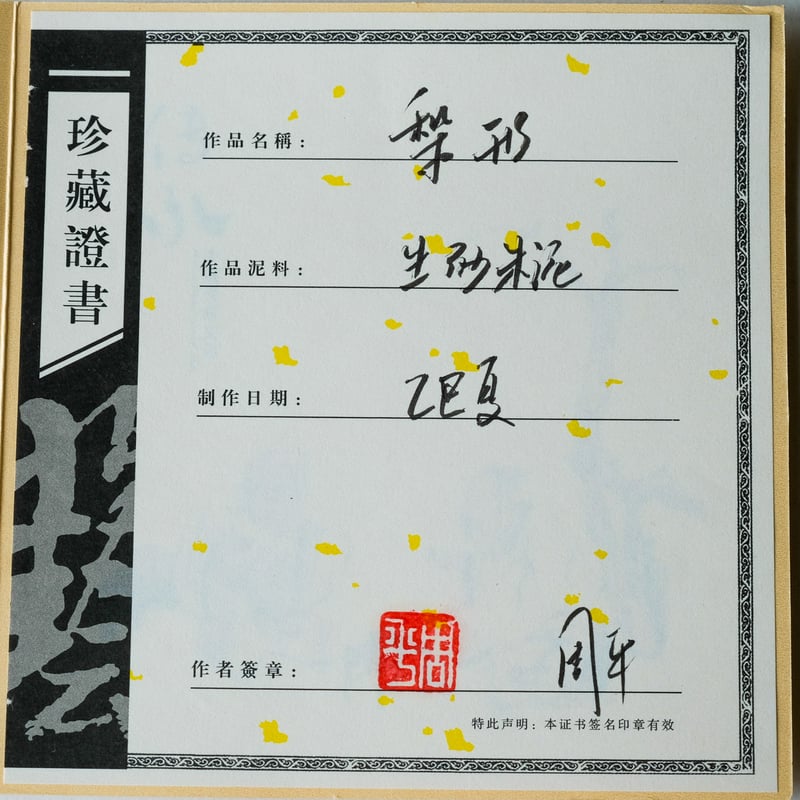 珍藏證書
作品名稱：梨形
作品泥料：生砂朱泥
制作日期：乙巳夏
作者簽章：周平 周平
特此声明：本证书签名印章有效